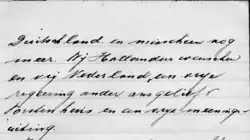 Duitschland en misschien nog
meer. Wij Hollanders wenschen
en vrij Nederland, en vrije
regeering onder ons geliefd
huis en een vrije meenings-
uiting.